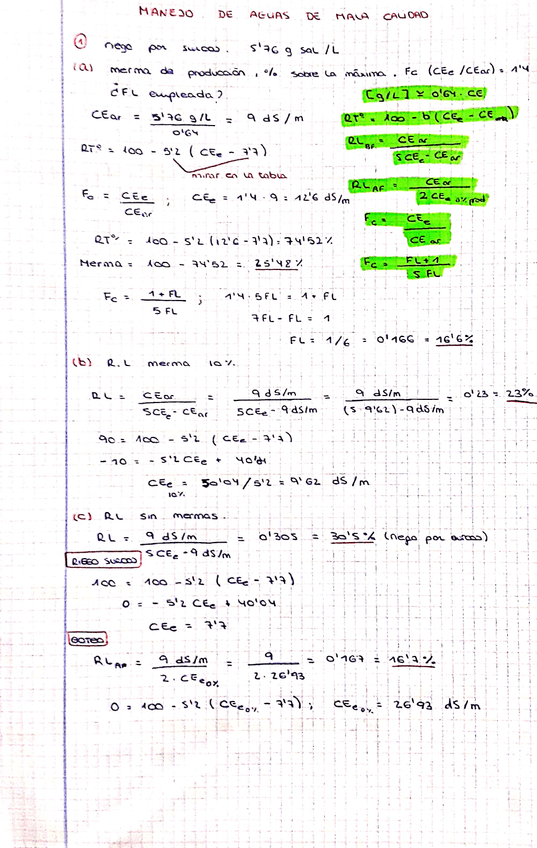 MANEJO DE AGUAS DE MALA CALIDAD
① riego por surcos. 5'76 g sal/L
(a) merma de producción, % sobre la máxima. Fc (CEe/CEar) = 1'4
¿FL empleada?
[g/L] ≃ 0'64 · CE
CEar = 5'76 g/L / 0'64 = 9 dS/m
RTº = 100 - b (CEe - CE
RTº = 100 - 5'2 (CEe - 7'7)
RL BF = CEar / 5CEe - CEar
mirar en la tabla
RL AF = CEar / 2 CEe 0% prod
Fc = CEe / CEar ; CEe = 1'4 · 9 = 12'6 dS/m
Fc = CEe / CEar
RTº = 100 - 5'2 (12'6 - 7'7) = 74'52%
Merma = 100 - 74'52 = 25'48%
Fc = FL + 1 / 5 FL
Fc = 1 + FL / 5 FL ; 1'4 · 5FL = 1 + FL
7FL - FL = 1
FL = 1/6 = 0'166 = 16'6%
(b) R.L merma 10%.
RL = CEar / 5CEe - CEar = 9 dS/m / 5CEe - 9 dS/m = 9 dS/m / (5 · 9'62) - 9 dS/m = 0'23 = 23%
90 = 100 - 5'2 (CEe - 7'7)
-10 = - 5'2 CEe + 40'04
CEe 10% = 50'04 / 5'2 = 9'62 dS/m
(c) RL sin mermas.
RL = 9 dS/m / 5CEe - 9 dS/m = 0'305 = 30'5% (riego por surcos)
RIEGO SURCOS
100 = 100 - 5'2 (CEe - 7'7)
0 = - 5'2 CEe + 40'04
CEe = 7'7
GOTEO
RL AF = 9 dS/m / 2 · CEe 0% = 9 / 2 · 26'93 = 0'167 = 16'7%
0 = 100 - 5'2 (CEe 0% - 7'7) ; CEe 0% = 26'93 dS/m